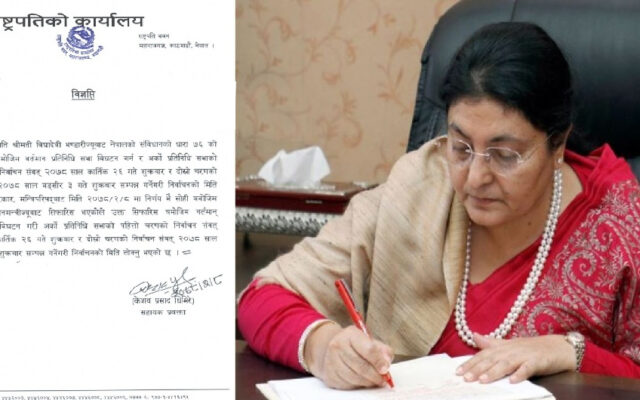 ाष्ट्रपतिको कार्यालय
राष्ट्रपति भवन
महाराजगञ्ज, काठमाडौं, नेपाल ।
विज्ञप्ति
ति श्रीमती विद्यादेवी भण्डारीज्यूबाट नेपालको संविधानको धारा ७६ को
मोजिम वर्तमान प्रतिनिधि सभा विघटन गर्न र अर्को प्रतिनिधि सभाको
निर्वाचन संवत् २०७८ साल कार्तिक २६ गते शुक्रवार र दोस्रो चरणको
२०७८ साल मङ्सीर ३ गते शुक्रवार सम्पन्न गर्नेगरी निर्वाचनको मिति
रकार, मन्त्रिपरिषद्‌बाट मिति २०७८/२/८ मा निर्णय भै सोही बमोजिम
ानमन्त्रीज्यूबाट सिफारिस भएकोले उक्त सिफारिस बमोजिम वर्तमान
विघटन गरी अर्को प्रतिनिधि सभाको पहिलो चरणको निर्वाचन संवत्
कार्तिक २६ गते शुक्रवार र दोस्रो चरणको निर्वाचन संवत् २०७८ साल
शुक्रवार सम्पन्न गर्नेगरी निर्वाचनको मिति तोक्नु भएको छ ।
२०७८/२/८
(केशव प्रसाद घिमिरे)
सहायक प्रवक्ता